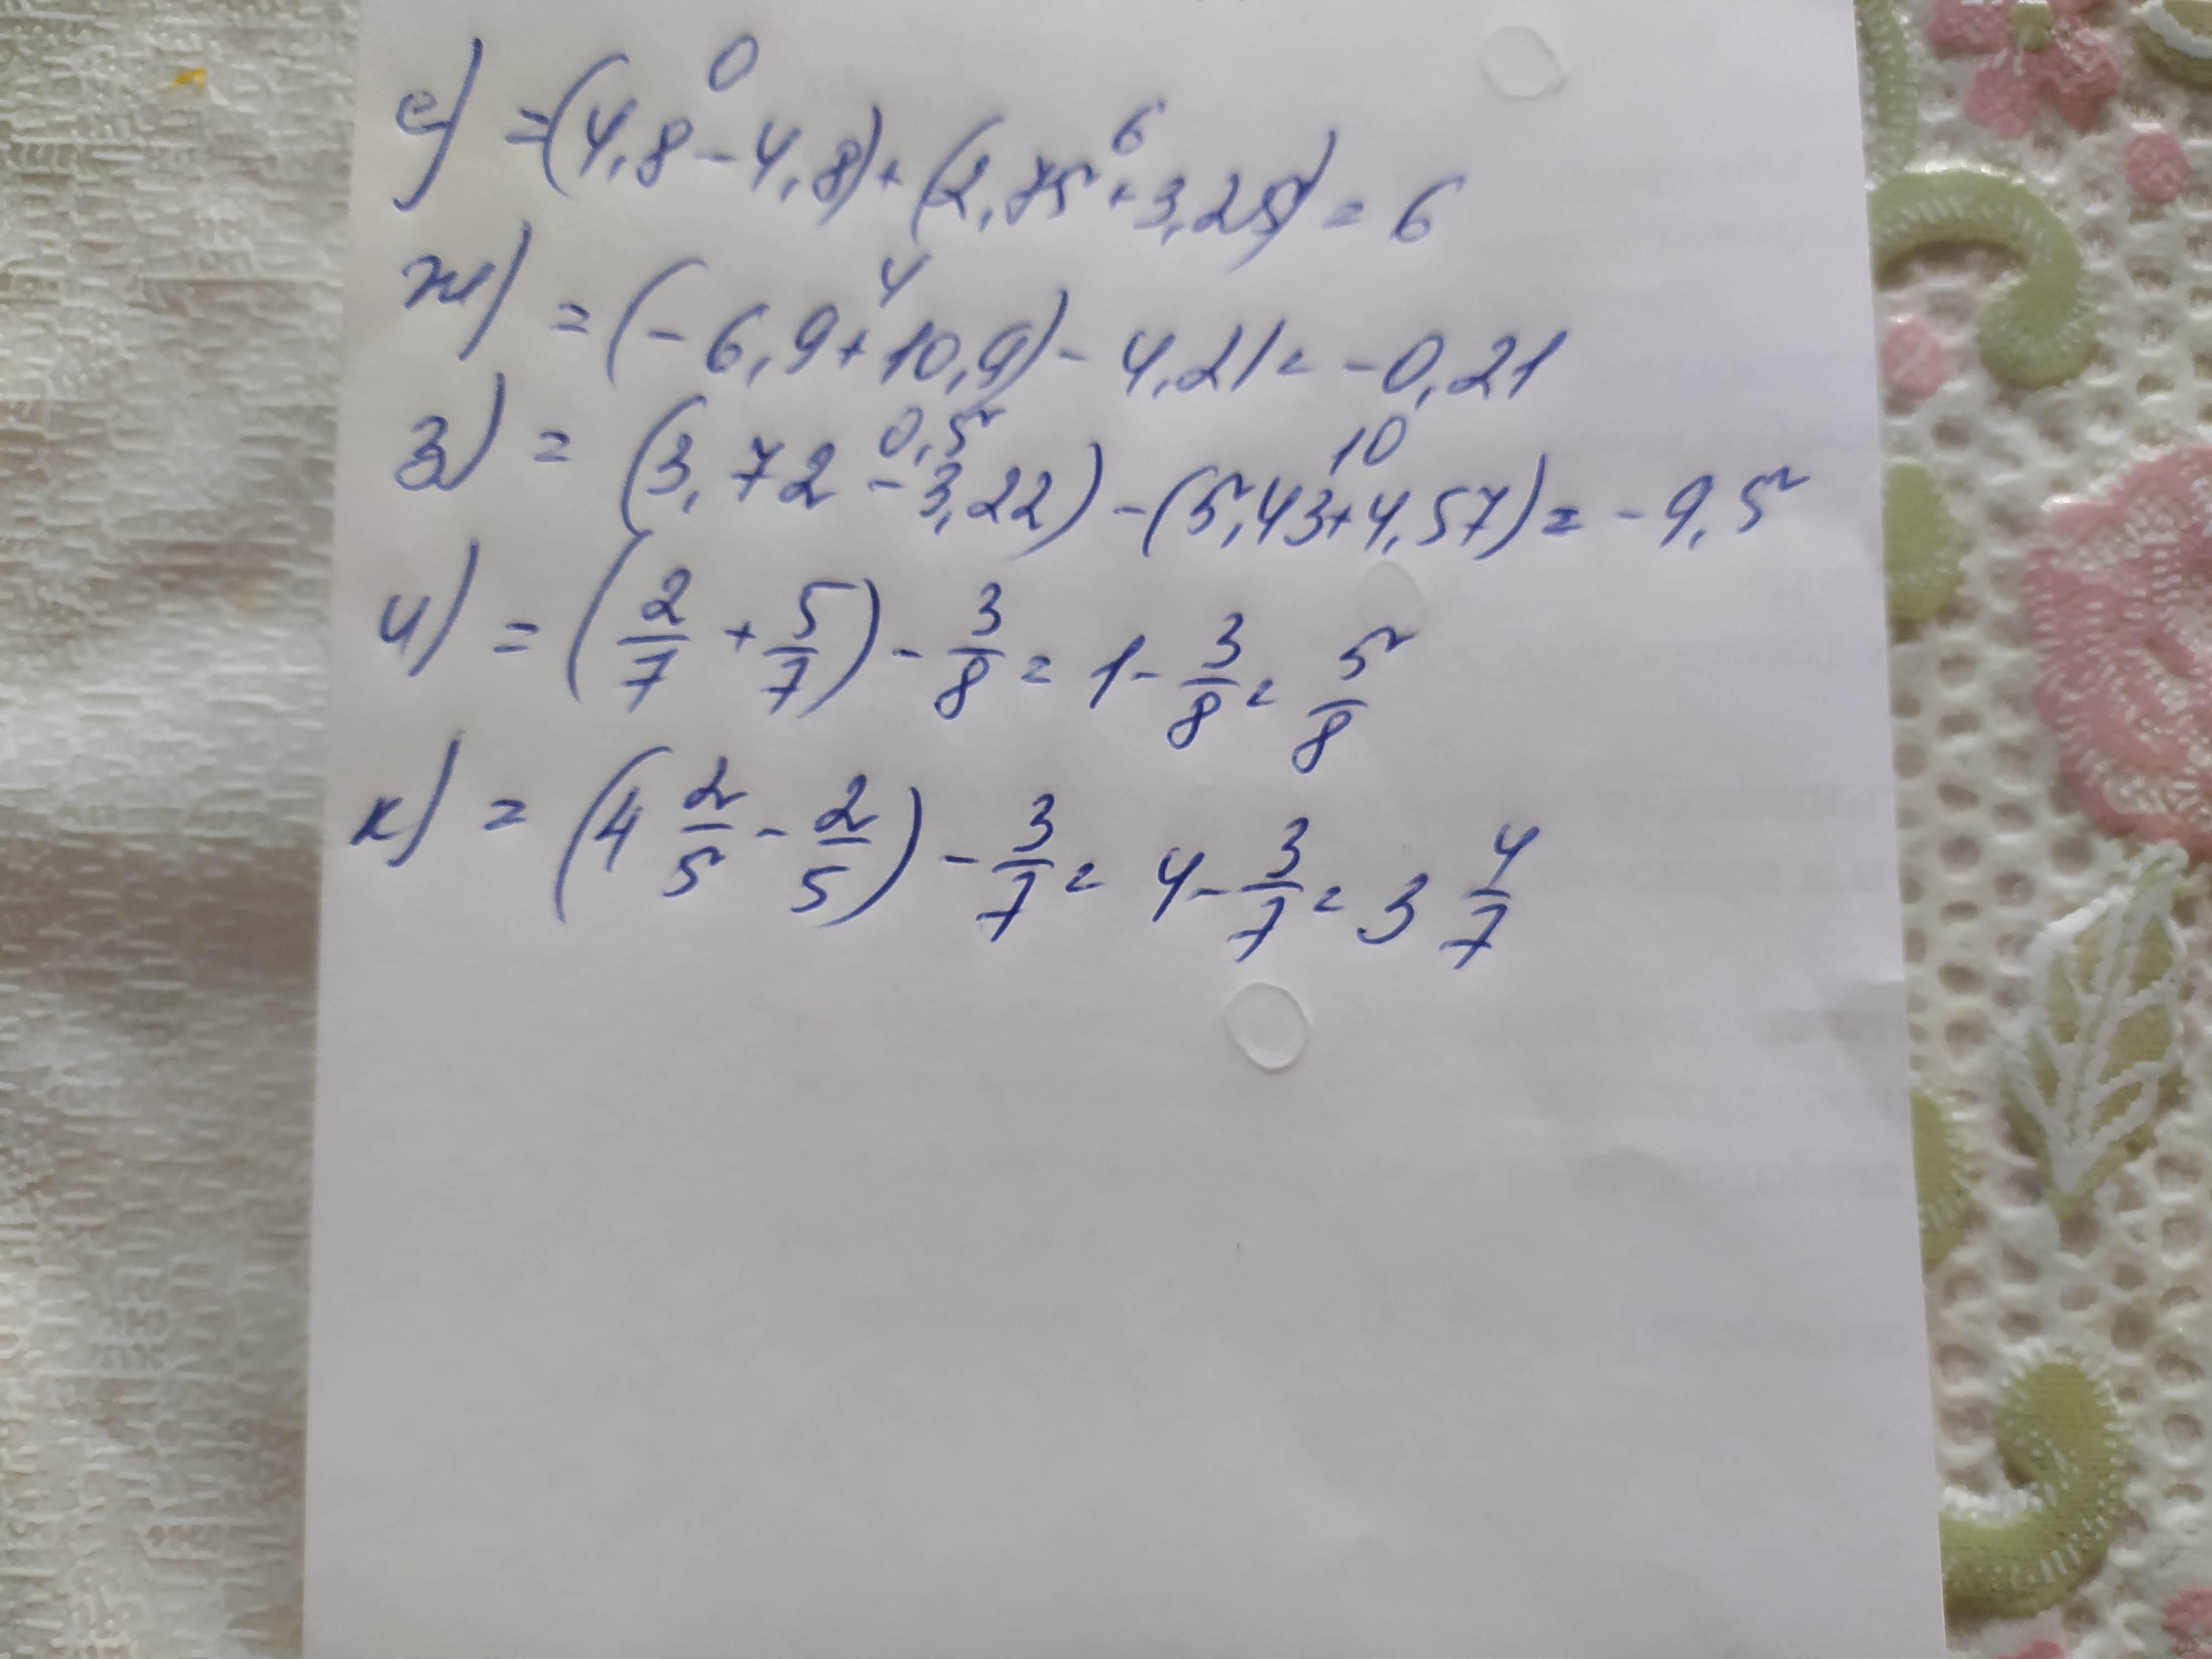 е) = (4,8 - 4,8) + (2,75 + 3,25) = 6
ж) = (- 6,9 + 10,9) - 4,21 = - 0,21
з) = (3,72 - 3,22) - (5,43 + 4,57) = - 9,5
и) = (2/7 + 5/7) - 3/8 = 1 - 3/8 = 5/8
к) = (4 2/5 - 2/5) - 3/7 = 4 - 3/7 = 3 4/7